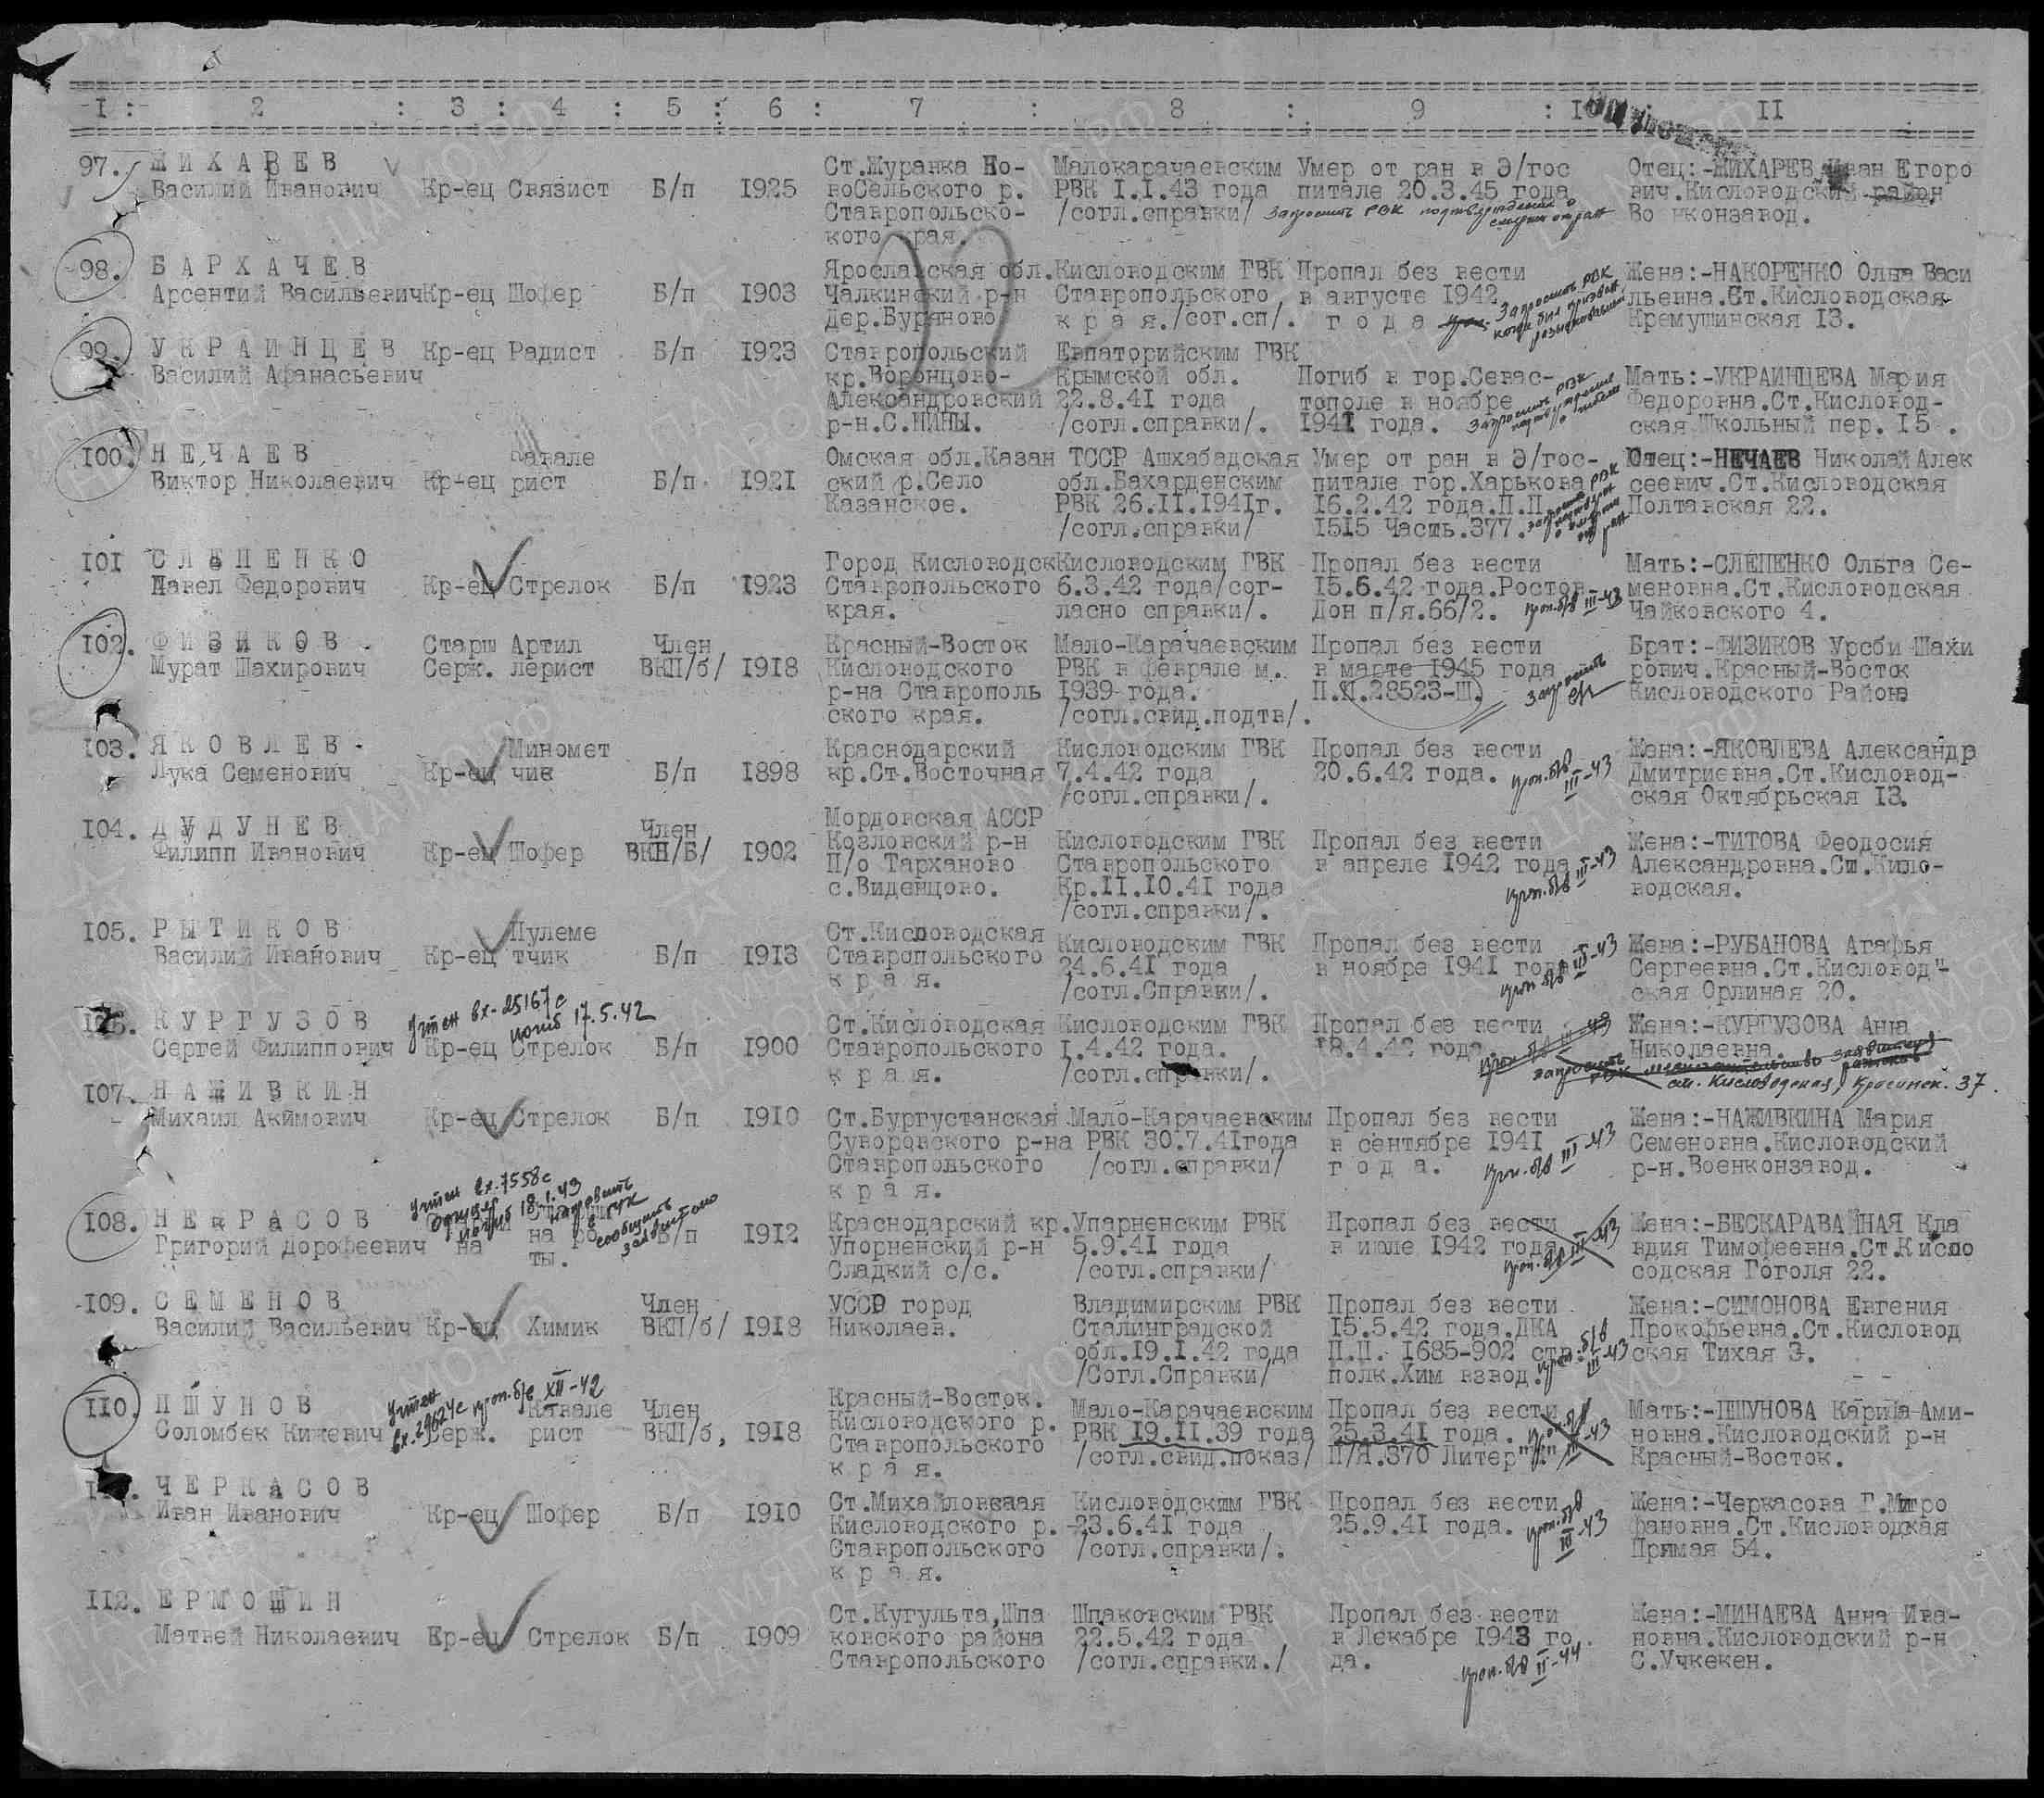 I : 2 : 3 : 4 : 5 : 6 : 7 : 8 : 9 : II
97. ЖИХАРЕВ
Василий Иванович Кр-ец Связист Б/п 1925
Ст.Журавка Но-
воСельского р.
Ставропольско-
кого края.
Малокарачаевским
РВК I.I.43 года
/согл.справки/
Умер от ран в Э/гос
питале 20.3.45 года
Запросить РВК подтверждения о
смерти от ран
Отец:-ЖИХАРЕВ Иван Егоро
вич.Кисловодский район
Во нконзавод.
98. БАРХАЧЕВ
Арсентий Васильевич Кр-ец Шофер Б/п 1903
Ярославская обл.
Чалкинский р-н
дер.Буряново
Кисловодским ГВК
Ставропольского
края./сог.сп/.
Пропал без вести
в августе 1942
года
Запросить РВК
когда был призван
Жена:-НАКОРЕНКО Олна Васи
льевна.Ст.Кисловодская
Кремушинская 13.
99. УКРАИНЦЕВ Кр-ец Радист Б/п 1923
Василий Афанасьевич
Ставропольский
кр.Воронцово-
Александровский
р-н.С.НИНЫ.
Евпаторийским ГВК
Крымской обл.
22.8.41 года
/согл.справки/.
Погиб в гор.Севас-
тополе в ноябре
1941 года.
Запросить РВК
подтверждения
о гибели
Мать:-УКРАИНЦЕВА Мария
Федоровна.Ст.Кисловод-
ская Школьный пер. 15 .
100. НЕЧАЕВ Кавале
Виктор Николаевич Кр-ец рист Б/п 1921
Омская обл.Казан
ский р.Село
Казанское.
ТССР Ашхабадская
обл.Бахарденским
РВК 26.II.1941г.
/согл.справки/
Умер от ран в Э/гос-
питале гор.Харькова
16.2.42 года.П.П.
1515 Часть.377.
Отец:-НЕЧАЕВ Николай Алек
сеевич.Ст.Кисловодская
Полтавская 22.
101 СЛЕПЕНКО
Павел Федорович Кр-ец Стрелок Б/п 1923
Город Кисловодск
Ставропольского
края.
Кисловодским ГВК
6.3.42 года/сог-
ласно справки/.
Пропал без вести
15.6.42 года.Ростов
Дон п/я.66/2. проп.б/в III-43
Мать:-СЛЕПЕНКО Ольга Се-
меновна.Ст.Кисловодская
Чайковского 4.
102. ФИЗИКОВ Старш Артил Член
Мурат Шахирович Серж. лерист ВКП/б/ 1918
Красный-Восток
Кисловодского
р-на Ставрополь
ского края.
Мало-Карачаевским
РВК в феврале м.
1939 года.
/согл.свид.подтв/.
Пропал без вести
в марте 1945 года
П.Я.28523-Ш.
запросить
Брат:-ФИЗИКОВ Урсби Шахи
рович.Красный-Восток
Кисловодского Района
103. ЯКОВЛЕВ Миномет
Лука Семенович Кр-ец чик Б/п 1898
Краснодарский
кр.Ст.Восточная
Кисловодским ГВК
7.4.42 года
/согл.справки/.
Пропал без вести
20.6.42 года. проп.б/в
III-43
Жена:-ЯКОВЛЕВА Александр
Дмитриевна.Ст.Кисловод-
ская Октябрьская 13.
104. ДУДУНЕВ Член
Филипп Иванович Кр-ец Шофер ВКП/Б/ 1902
Мордовская АССР
Козловский р-н
П/о Тарханово
с.Виденцово.
Кисловодским ГВК
Ставропольского
Кр.II.10.41 года
/согл.справки/.
Пропал без вести
в апреле 1942 года
проп.б/в III-43
Жена:-ТИТОВА Феодосия
Александровна.Ст.Кисло-
водская.
105. РЫТИКОВ Пулеме
Василий Иванович Кр-ец тчик Б/п 1913
Ст.Кисловодская
Ставропольского
края.
Кисловодским ГВК
24.6.41 года
/согл.Справки/.
Пропал без вести
в ноябре 1941 года
проп б/в III-43
Жена:-РУБАНОВА Агафья
Сергеевна.Ст.Кисловод"-
ская Орлиная 20.
106. КУРГУЗОВ Учтен вх-25167с
погиб 17.5.42
Сергей Филиппович Кр-ец Стрелок Б/п 1900
Ст.Кисловодская
Ставропольского
края.
Кисловодским ГВК
I.4.42 года.
/согл.справки/.
Пропал без вести
18.4.42 года
проп б/в III-43
Жена:-КУРГУЗОВА Анна
Николаевна.
запросить РВК местожительство заявителя
ст. Кисловодская, Красинск. 37.
107. НАЖИВКИН
Михаил Акимович Кр-ец Стрелок Б/п 1910
Ст.Бургустанская
Суворовского р-на
Ставропольского
края.
Мало-Карачаевским
РВК 30.7.41года
/согл.справки/
Пропал без вести
в сентябре 1941
года. проп.б/в III-43
Жена:-НАЖИВКИНА Мария
Семеновна.Кисловодский
р-н.Военконзавод.
Учтен вх.7558с
офицер
погиб 18.1.43
направить
в ГУК
сообщить
108. НЕКРАСОВ
Григорий Дорофеевич на на ро Б/п 1912
ты.
Краснодарский кр.
Упорненский р-н
Сладкий с/с.
Упарненским РВК
5.9.41 года
/согл.справки/
Пропал без вести
в июле 1942 года
проп.б/в III-43
Жена:-БЕСКАРАВАЙНАЯ Кла
вдия Тимофеевна.Ст.Кисло
содская Гоголя 22.
109. СЕМЕНОВ Член
Василий Васильевич Кр-ец Химик ВКП/б/ 1918
УССР город
Николаев.
Владимирским РВК
Сталинградской
обл.19.I.42 года
/Согл.Справки/
Пропал без вести
15.5.42 года.ДКА
П.П. 1685-902 стр.
полк.Хим взвод. проп.б/в
III-43
Жена:-СИМОНОВА Евгения
Прокофьевна.Ст.Кисловод
ская Тихая 3.
110. ПШУНОВ Кавале Член
Учтен вх.29624с проп.б/в XII-42
Соломбек Кижевич Серж. рист ВКП/б, 1918
Красный-Восток.
Кисловодского р.
Ставропольского
края.
Мало-Карачаевским
РВК 19.II.39 года
/согл.свид.показ/
Пропал без вести
25.3.41 года.
П/Я.370 Литер"Д"
Мать:-ПШУНОВА Карина Ами-
новна.Кисловодский р-н
Красный-Восток.
ЧЕРКАСОВ
Иван Иванович Кр-ец Шофер Б/п 1910
Ст.Михайловская
Кисловодского р.
Ставропольского
края.
Кисловодским ГВК
23.6.41 года
/согл.справки/.
Пропал без вести
25.9.41 года. проп.б/в
III-43
Жена:-Черкасова Г.Митро
фановна.Ст.Кисловодская
Прямая 54.
112. ЕРМОШИН
Матвей Николаевич Кр-ец Стрелок Б/п 1909
Ст.Кугульта,Шпа
ковского района
Ставропольского
Шпаковским РВК
22.5.42 года
/согл.справки./
Пропал без вести
в Декабре 1943 го
да. проп.б/в II-44
Жена:-МИНАЕВА Анна Ива-
новна.Кисловодский р-н
С.Учкекен.